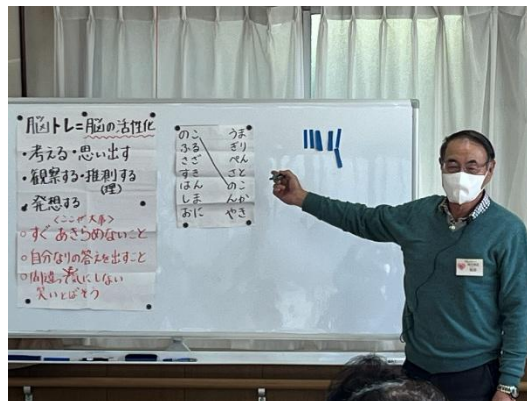 脳トレ=脳の活性化
・考える・思い出す
・観察する・推測する
(理)
・発想する
<ここが大事>
○すぐあきらめないこと
○自分なりの答えを出すこと
○間違って気にしない
笑いとばそう
のこ うま
ふる ぎり
さざ ぺん
すき さと
はん のこ
しま んか
おに やき